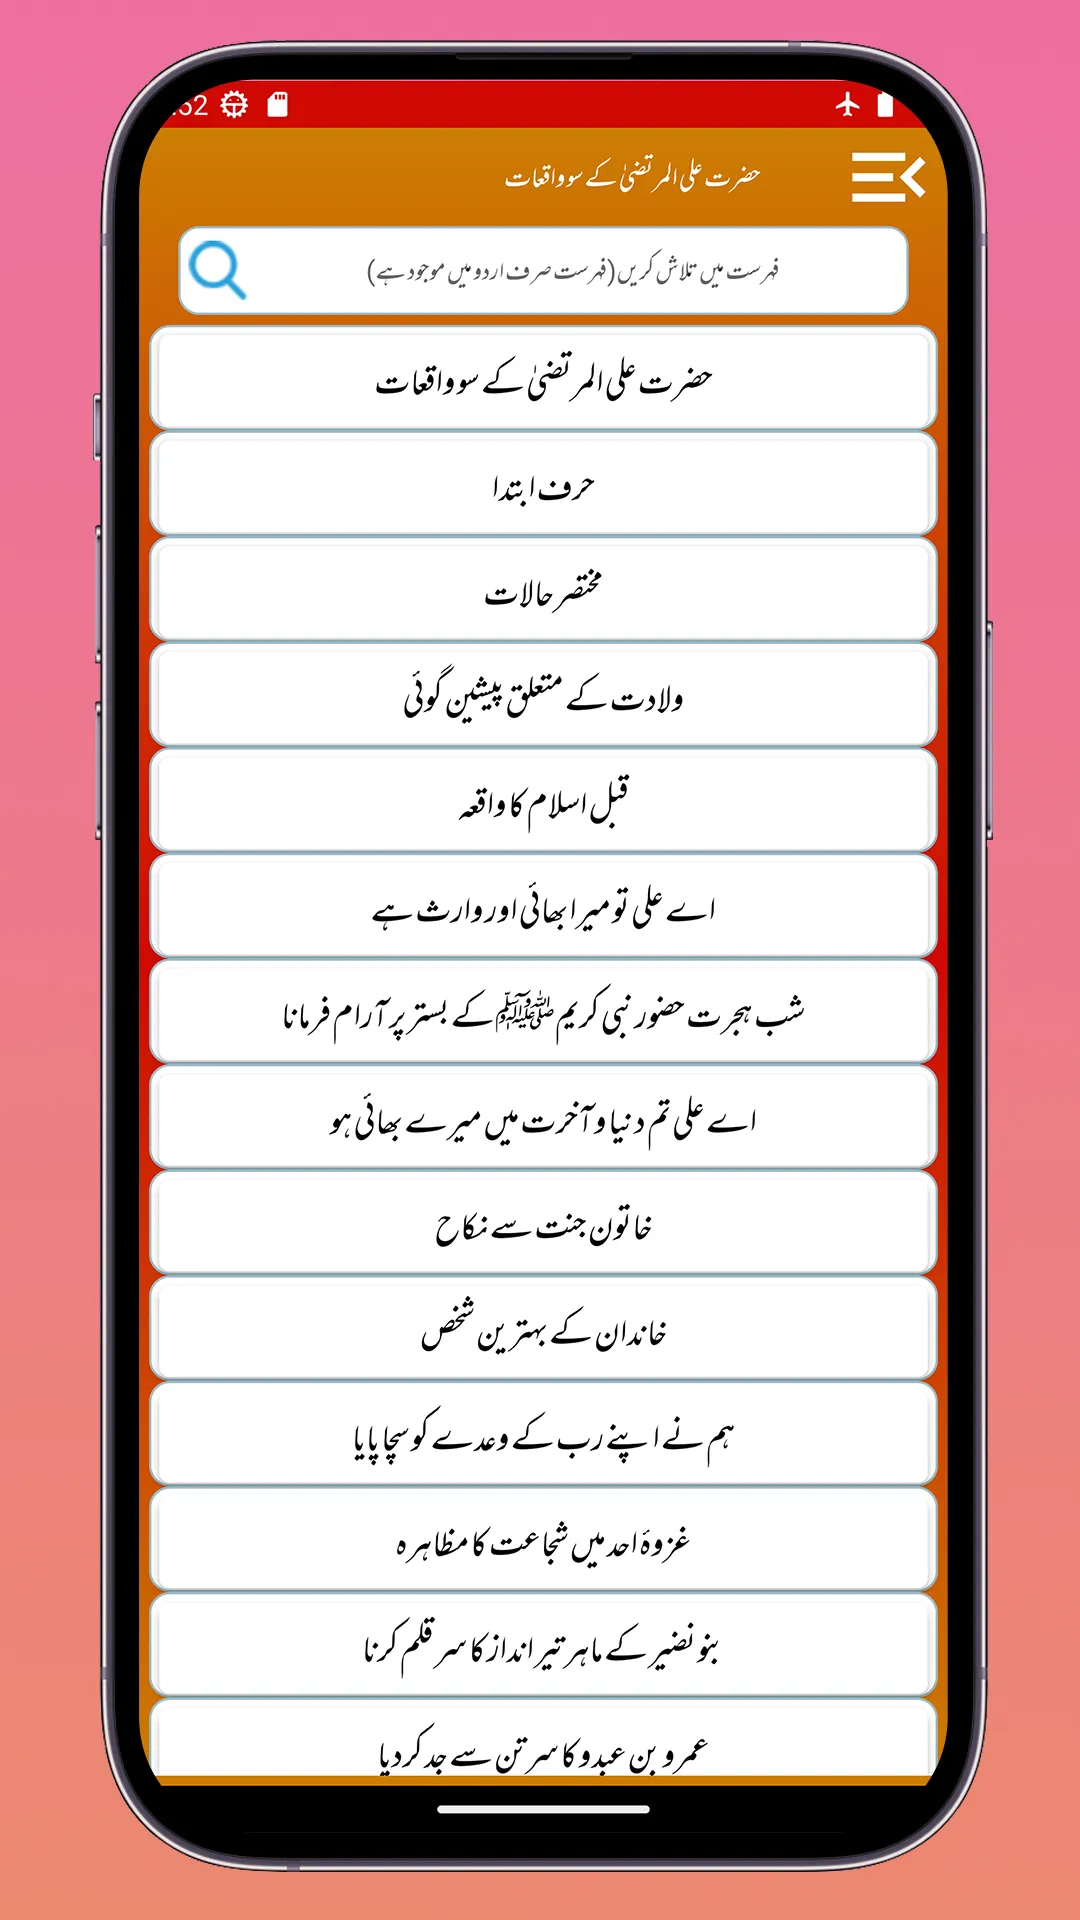 52
حضرت علی المرتضیٰ کے سو واقعات
فہرست میں تلاش کریں (فہرست صرف اردو میں موجود ہے)
حضرت علی المرتضیٰ کے سو واقعات
حرف ابتدا
مختصر حالات
ولادت کے متعلق پیشین گوئی
قبل اسلام کا واقعہ
اے علی تو میرا بھائی اور وارث ہے
شب ہجرت حضور نبی کریم ﷺ کے بستر پر آرام فرمانا
اے علی تم دنیا و آخرت میں میرے بھائی ہو
خاتون جنت سے نکاح
خاندان کے بہترین شخص
ہم نے اپنے رب کے وعدے کو سچا پایا
غزوۂ احد میں شجاعت کا مظاہرہ
بنو نضیر کے ماہر تیر انداز کا سر قلم کرنا
عمرو بن عبدو کا سر تن سے جد کر دیا